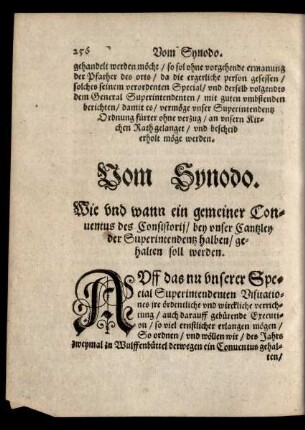 256 Vom Synodo.
gehandelt werden möcht / so sol ohne vorgehende ermanung
der Pfarher des orts / da die ergerliche person gesessen /
solches seinem verordenten Special / vnd derselb volgendts
dem General Superintendenten / mit guten vmbstenden
berichten / damit es / vermöge vnser Superintendentz
Ordnung fürter ohne verzug / an vnsern Kir-
chen Rath gelanget / vnd bescheid
erholt möge werden.
Vom Synodo.
Wie vnd wann ein gemeiner Con-
uentus des Consistorij / bey vnser Cantzley
der Superintendentz halben / ge-
halten soll werden.
AVff das nu vnserer Spe-
cial Superintendenten Visitatio-
nes jre ördentliche vnd würckliche verrich-
tung / auch darauff gebürende Executi-
on / so viel ernstlicher erlangen mögen /
So ordnen / vnd wöllen wir / des Jahrs
zweymal zu Wulffenbüttel derwegen ein Conuentus gehal-
ten /